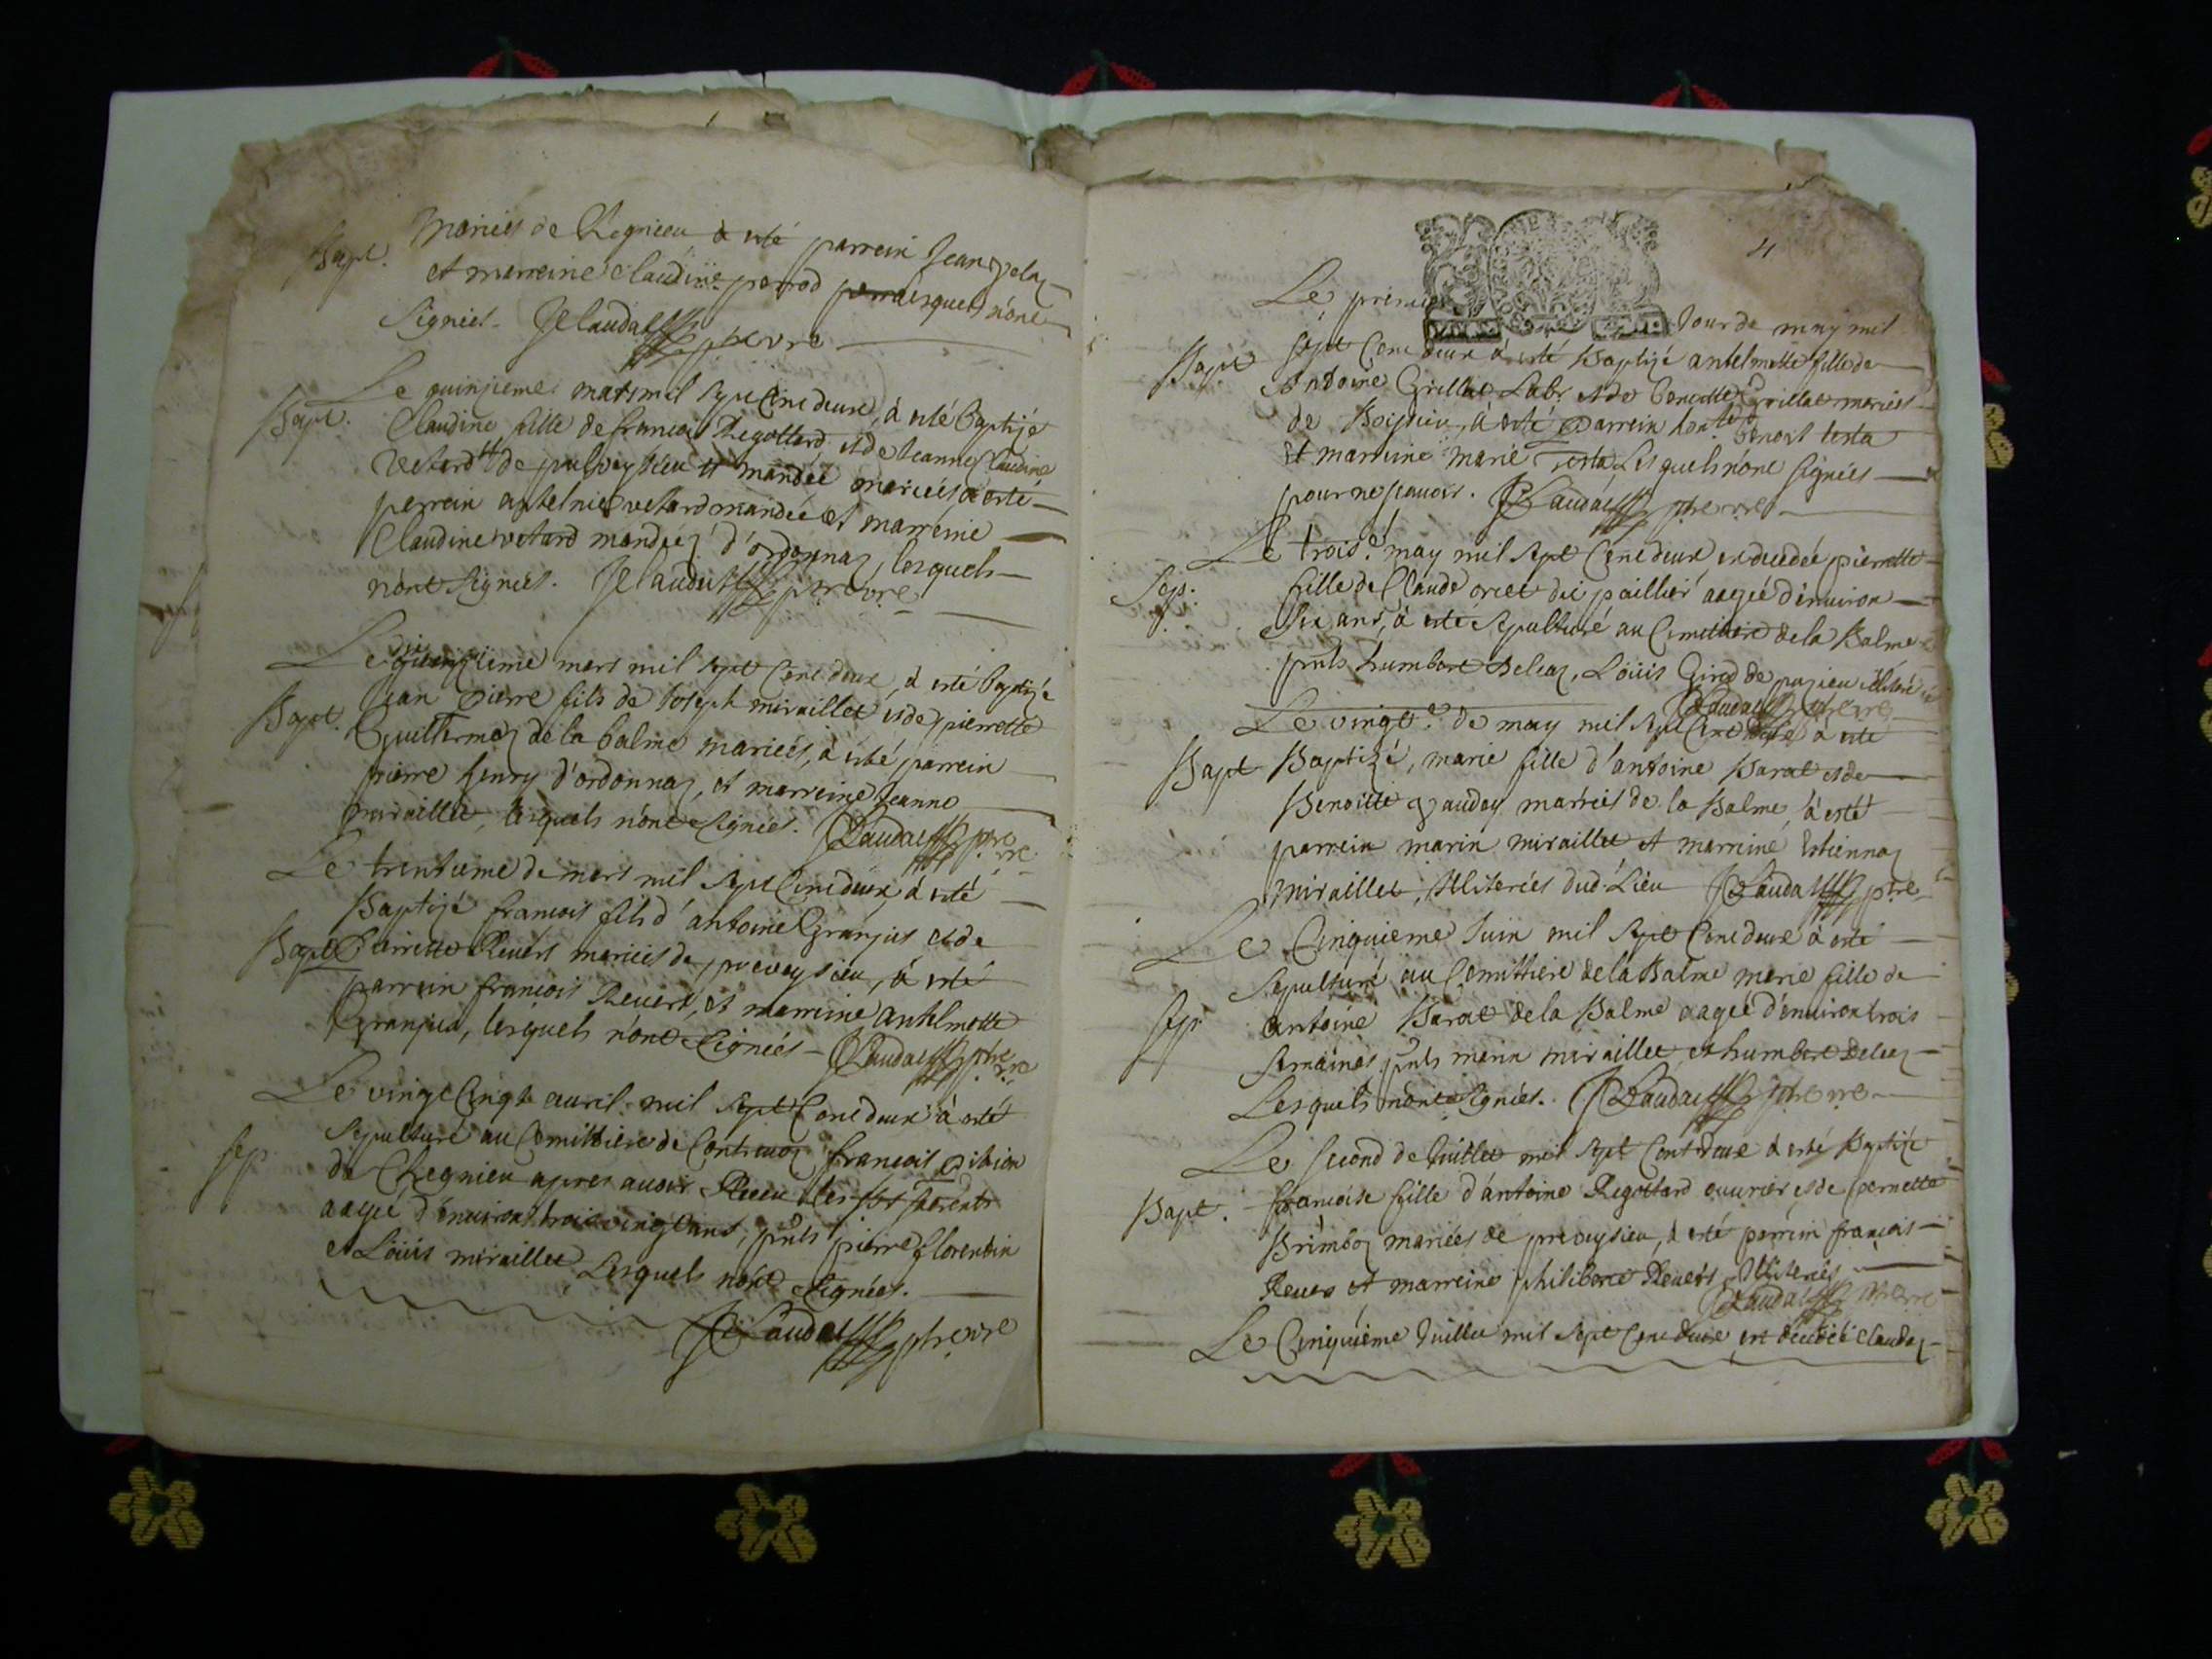 Bapt. mariés de Regnieu à esté parrein Jean
et marreine Claudine perrod lesquels n'ont
signiés. Claudat ptre vre
Le quinzieme mars mil sept Cent deux, à esté baptizé
Bapt. Claudine fille de francois Regottard et de Jeanne Claudine
vetard de et mandée mariés à esté
perrein antelme vetard mandée et marreine
Claudine vetard mandée d'ordonnaz, lesquels
n'ont signiés. Claudat ptre vre
Le mars mil sept Cent deux, à esté baptizé
Bapt. Jean Pierre fils de Joseph miraillet et de pierrette
Guillermoz de la balme mariés, à esté parrein
pierre henry d'ordonnaz, et marreine Jeanne
miraillet, lesquels n'ont signiés. Claudat ptre vre
Le trentieme de mars mil sept Cent deux, à esté
Baptizé francois fils d'antoine Granjus et de
Bapt Pierrette Reverd mariés de preveysieu, à esté
parrein francois Reverd, et marreine antelmette
granjus, lesquels n'ont signiés - Claudat ptre vre
Le vingt Cinq avril mil sept Cent deux à esté
Sep sepulturé au Cemittiere de Contrevoz francois
de Regnieu apres avoir Receu les sts
aagé d'environ trois vingt ans, pnts pierre florentin
et Louis miraillet, Lesquels n'ont signiés.
Claudat ptre vre
4
Le premier Jour de may mil
Bapt sept Cent deux à esté Baptizé antelmette fille de
Antoine Grillat Labr et de benoitte Grillat mariés
de Boissieu, à esté Parrein benoist testa
et marreine marie testa, Lesquels n'ont signiés
pour ne scavoir. Claudat ptre vre
Le trois.e may mil sept Cent deux est decedée pierrette
Sep. fille de Claude dit paillier aagée d'environ
six ans, à esté sepulturé au Cimettiere de la Balme
pnts humbert Beleaz, Louis Girod de pugieu illiterés
Claudat ptre vre
Le vingt.e de may mil sept Cent deux à esté
Bapt Baptizé, marie fille d'antoine Barat et de
Benoitte gaudoz mariés de la Balme, à esté
parrein marin miraillet et marreine Estiennaz
miraillet, Illiterés dud. Lieu Claudat ptre
Le Cinquieme Juin mil sept Cent deux à esté
sepulturé au Cemittiere de la Balme marie fille de
Sep antoine Barat de la Balme aagée d'environ trois
semaines pnts marin miraillet, et humbert Beleaz
Lesquels n'ont signiés. Claudat ptre vre
Le second de Juillet mil sept Cent deux à esté Baptizé
Bapt. francoise fille d'antoine Regottard ouvrier et de pernette
Brimboz mariés de preveysieu, à esté parrein francois
Revers et marreine philiberte Revers Illiterés
Claudat ptre vre
Le Cinquieme Juillet mil sept Cent deux est decedée Claudaz